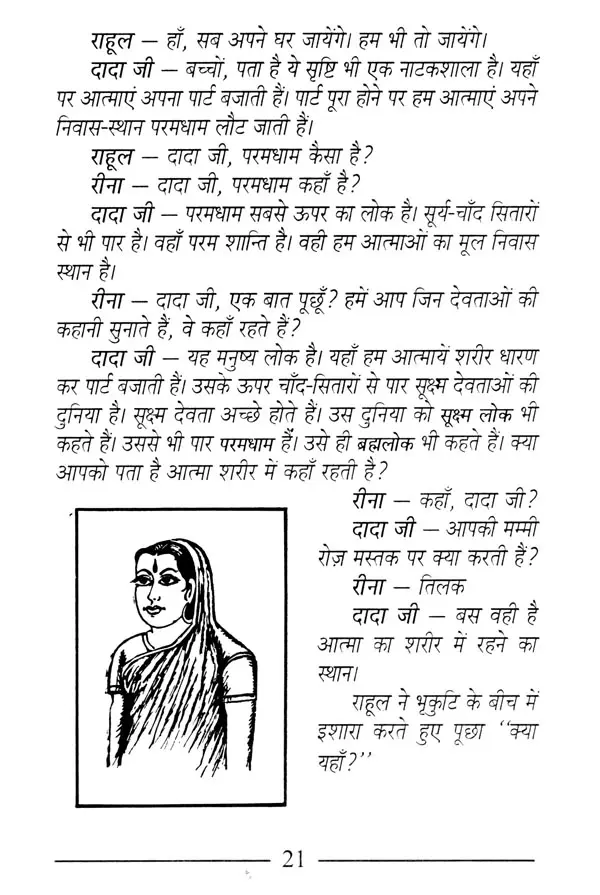 राहूल – हाँ, सब अपने घर जायेंगे। हम भी तो जायेंगे।
दादा जी – बच्चों, पता है ये सृष्टि भी एक नाटकशाला है। यहाँ
पर आत्माएं अपना पार्ट बजाती हैं। पार्ट पूरा होने पर हम आत्माएं अपने
निवास-स्थान परमधाम लौट जाती हैं।
राहूल – दादा जी, परमधाम कैसा है?
रीना – दादा जी, परमधाम कहाँ है?
दादा जी – परमधाम सबसे ऊपर का लोक है। सूर्य-चाँद सितारों
से भी पार है। वहाँ परम शान्ति है। वही हम आत्माओं का मूल निवास
स्थान है।
रीना – दादा जी, एक बात पूछूँ? हमें आप जिन देवताओं की
कहानी सुनाते हैं, वे कहाँ रहते हैं?
दादा जी – यह मनुष्य लोक है। यहाँ हम आत्मायें शरीर धारण
कर पार्ट बजाती हैं। उसके ऊपर चाँद-सितारों से पार सूक्ष्म देवताओं की
दुनिया है। सूक्ष्म देवता अच्छे होते हैं। उस दुनिया को सूक्ष्म लोक भी
कहते हैं। उससे भी पार परमधाम हैं। उसे ही ब्रह्मलोक भी कहते हैं। क्या
आपको पता है आत्मा शरीर में कहाँ रहती है?
रीना – कहाँ, दादा जी?
दादा जी – आपकी मम्मी
रोज़ मस्तक पर क्या करती हैं?
रीना – तिलक
दादा जी – बस वही है
आत्मा का शरीर में रहने का
स्थान।
राहूल ने भृकुटि के बीच में
इशारा करते हुए पूछा "क्या
यहाँ?"
21